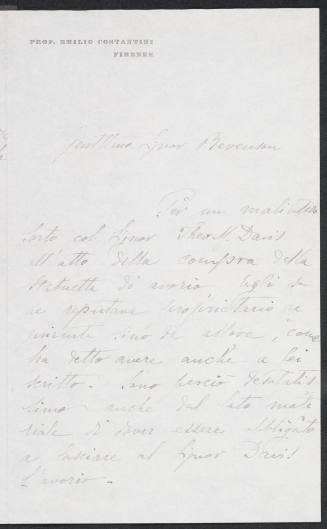 PROF. EMILIO COSTANTINI
FIRENZE
Gentilmo Signor Berenson
Per un malinteso
sorto col Signor Theo. M. Davis
all'atto della compra della
statuetta di avorio Egli se
ne reputava proprietario
sino da allora, come
ha detto avere anche a lei
scritto. Sono perciò desolatis
simo anche dal lato mate
riale di dover essere obbligato
a lasciare al Signor Davis
l'avorio.